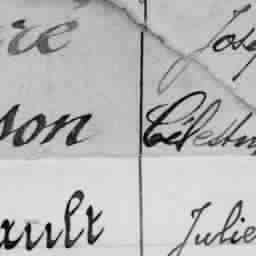 ré Jose
son Célestin
ault Julie